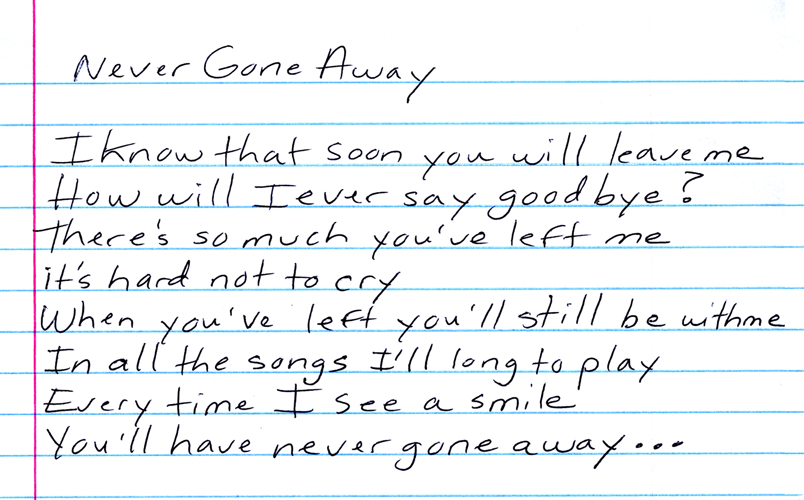 Never Gone Away
I know that soon you will leave me
How will I ever say goodbye?
There's so much you've left me
it's hard not to cry
When you've left you'll still be with me
In all the songs I'll long to play
Every time I see a smile
You'll have never gone away...